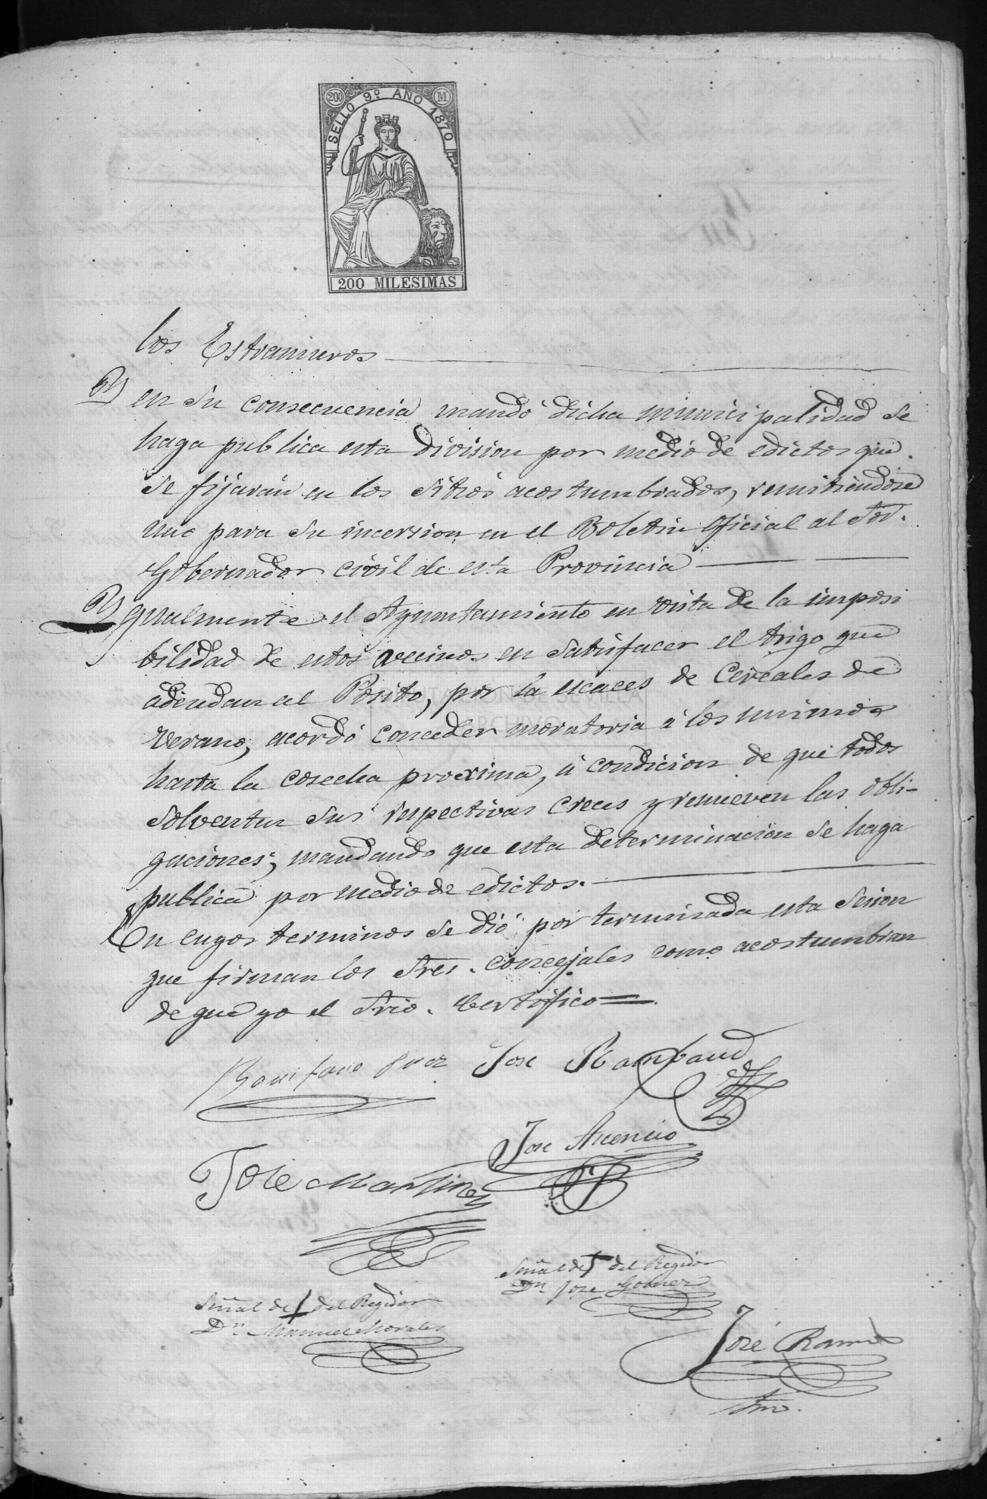 20 M
SELLO 9º AÑO 1870
200 MILESIMAS
los Estranjeros
Y en su consecuencia mandó dicha municipalidad se
haga publica esta division por medio de edictos que
se fijarán en los sitios acostumbrados, remitiendose
uno para su incersion en el Boletin Oficial al Sor.
Gobernador civil de esta Provincia
Ygualmente el Ayuntamiento en vista de la imposi
bilidad de estos vecinos en satisfacer el trigo que
adeudan al Posito, por la escaces de Cereales de
Verano, acordó conceder moratoria á los mismos
hasta la cosecha proxima, á condicion de que todos
solventen sus respectivas creces y renueven las obli-
gaciones; mandando que esta determinacion se haga
publica por medio de edictos.
En cuyos terminos se dió por terminada esta sesion
que firman los Sres. concejales como acostumbran
de que yo el Srio. Certifico=
Jose Rambaud
Jose Asencio
Jose Martinez
Señal de † del Regidor
Dn. Jose
Señal de † del Regidor
Dn. Manuel Morales
José
Srio.
DIPUTACION DE SEVILLA
ARCHIVO